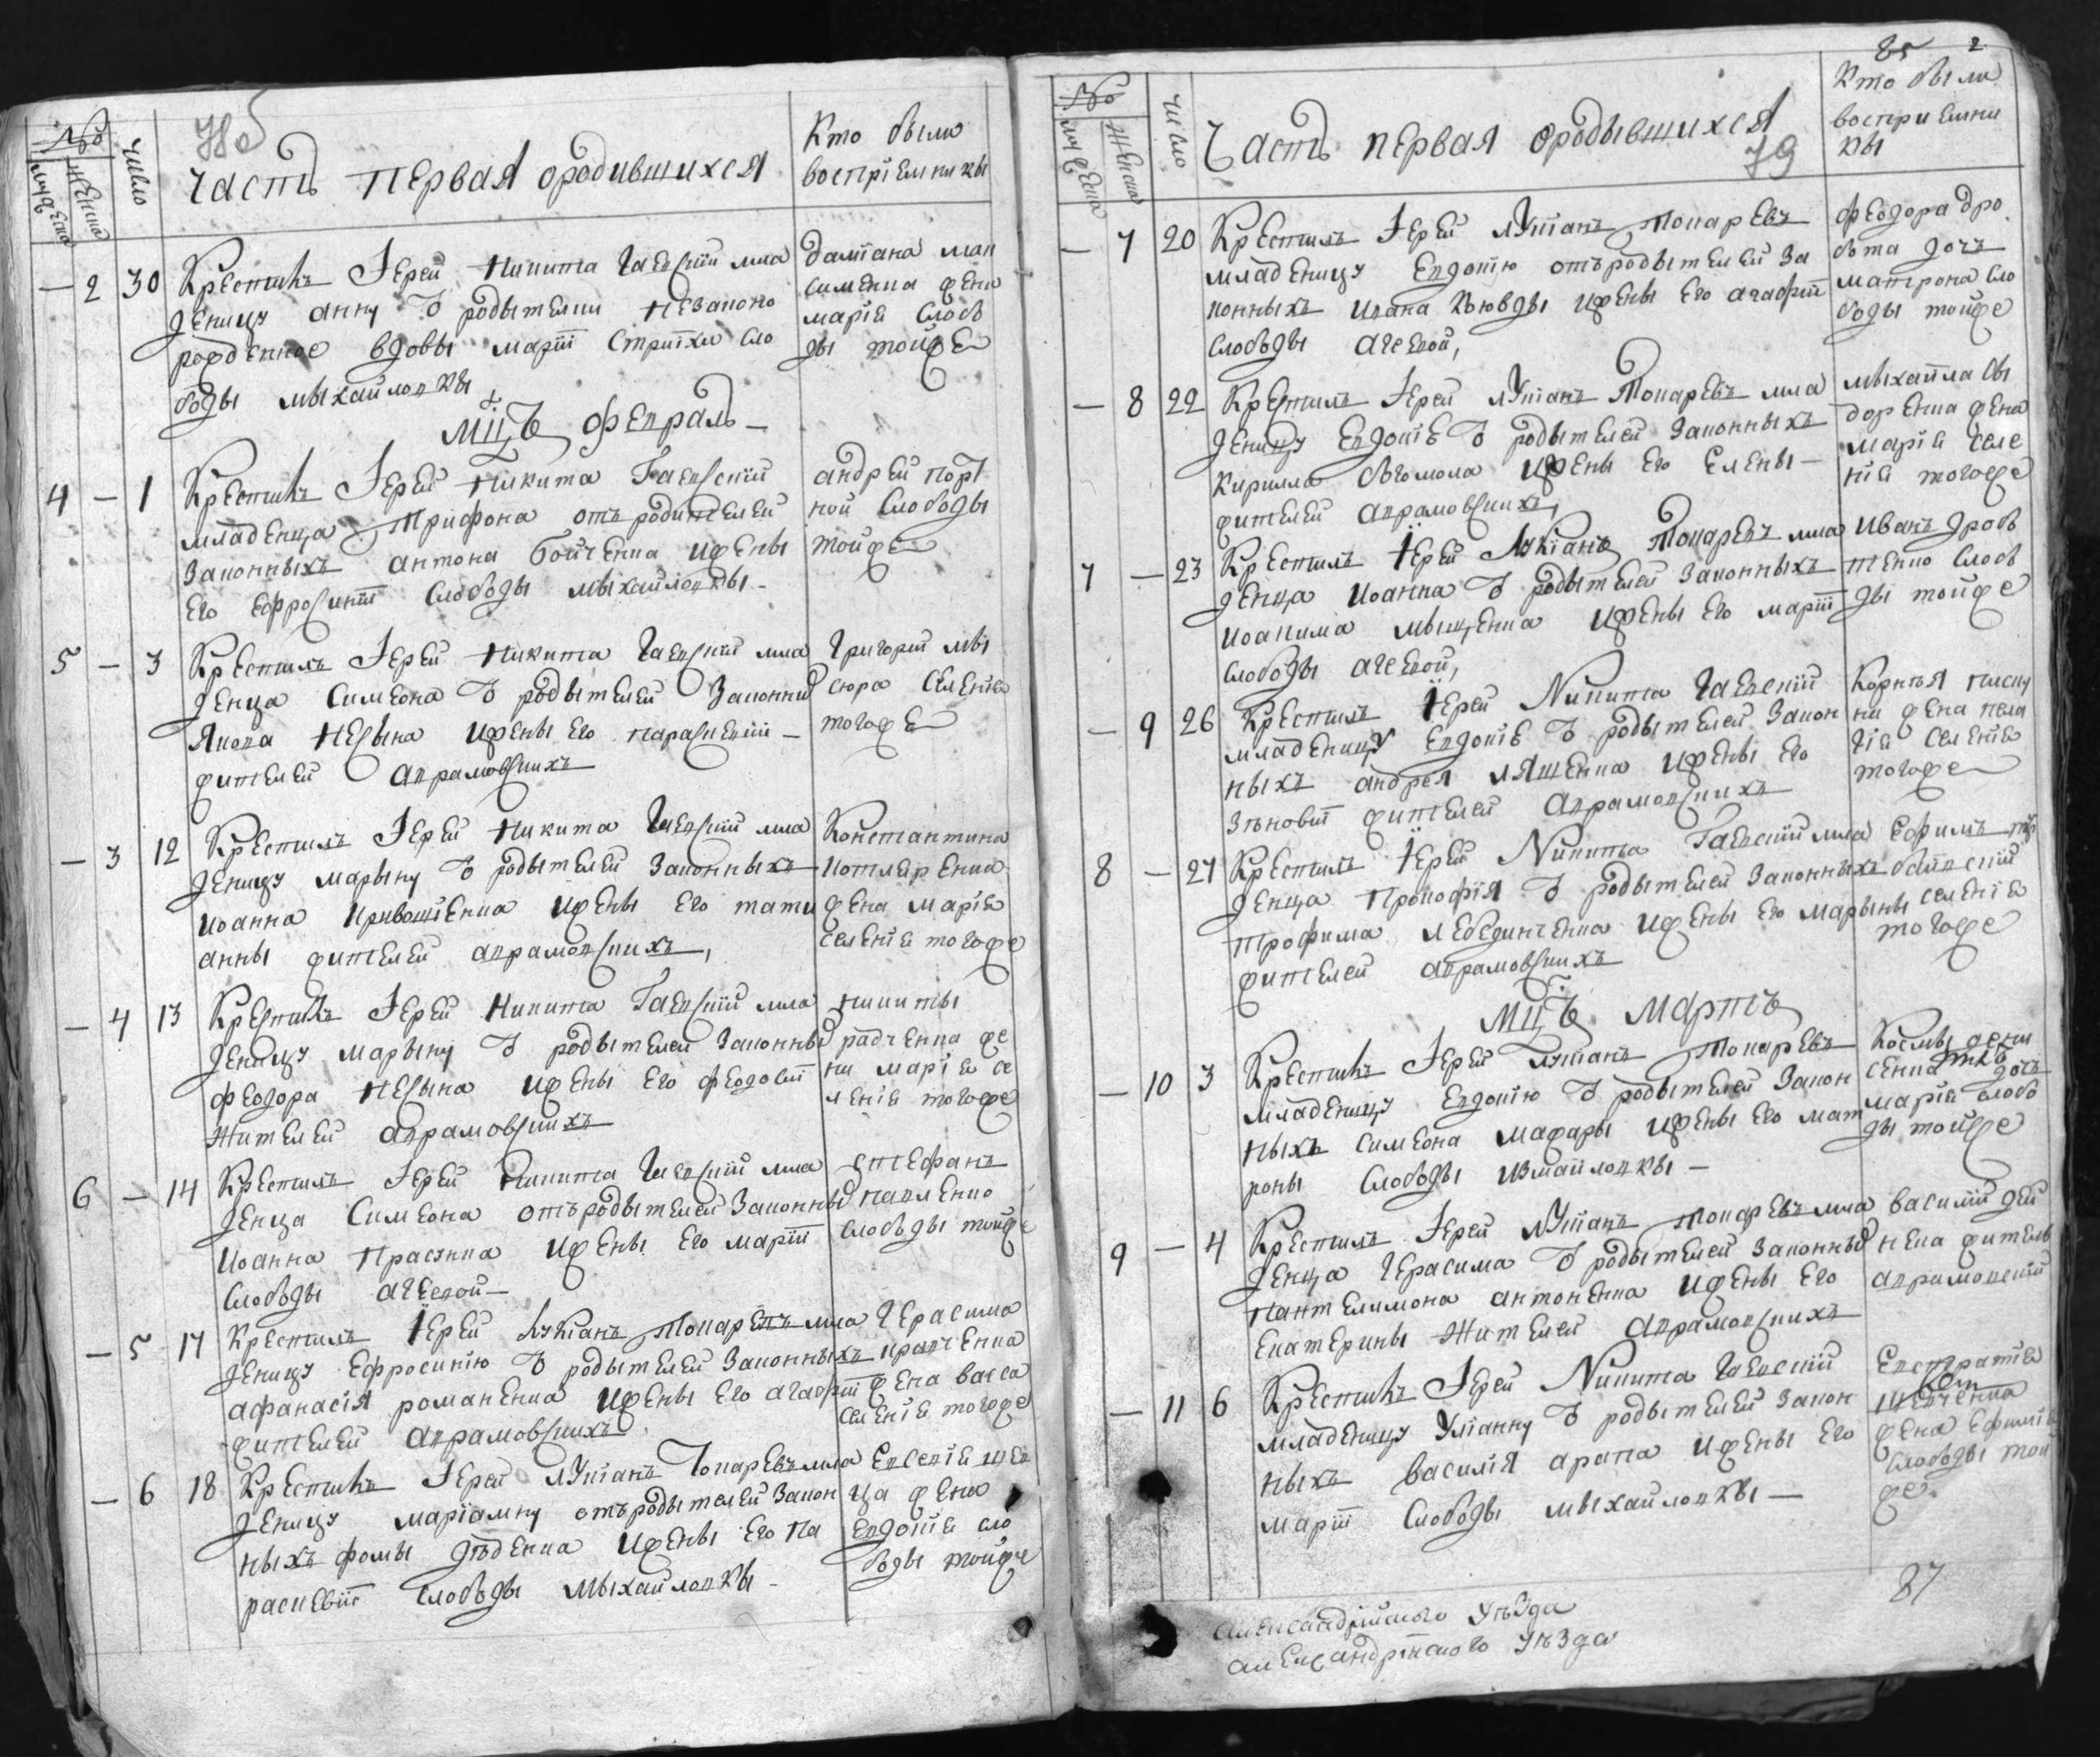 №
мужеска
женска
число
78 об
Часть первая ородившихся
Кто были
воспрiемники
— 2 30 Крестилъ Iерей Никита Гаевскiй мла
деницу анну ѿ родытелки незаконо
рожденное вдовы марiи Стритхи сло
боды мыхайловкы
дамiана мак
сименка жена
марiя слобо
ды тойже
мцъ февраль —
4 — 1 Крестилъ Iерей Никита Гаевскiй
младенца Трифона отъ родителей
Законныхъ антона Бойченка иженѣ
Его Ефросинiи слободы мыхайловкы -
андрей порт
ной слободы
тойже
5 — 3 Крестилъ Iерей Никита Гаевскiй мла
денца Симеона ѿ родытелей Законны
Якова несына ижены Его параскевiи —
жителей аврамовскихъ
Григорiй
сюра селенiя
тогоже
— 3 12 Крестилъ Iерей Никита Гаевскiй мла
деницу марыну ѿ родытелей Законныхъ
Иоанна кривошiенка ижены Его тати
анны жителей аврамовскихъ,
Константина
котляренка
жена марiя
селенiя тогоже
— 4 13 Крестилъ Iерей Никита Гаевскiй мла
деницу марыну ѿ родытелей Законны
феодора несына ижены Его феодосiи
Жителей аврамовскихъ
никиты
радченка же
на марiя се
ленiя тогоже
6 — 14 Крестилъ Iерей Никита Гаевскiй мла
денца Симеона отъ родытелей Законны
Иоанна Красника ижены Его марiи
Слободы агеевой —
стефанъ
павленко
слободы тойже
— 5 17 Крестилъ Iерей Лукiанъ Токаревъ мла
деницу Ефросинiю ѿ родытелей Законныхъ
афанасiя романенка ижены Его агафiи
жителей аврамовскихъ
Герасима
кравченка
жена васса
селенiя тогоже
— 6 18 Крестилъ Iерей лукiанъ Токаревъ мла
деницу марiамну отъ родытелей Закон
ныхъ фомы дѣденка ижены Его па
раскевiи слободы мыхайловкы -
Евсевiя шев
ца жена
Евдокiя сло
боды тойже
№
мужеска
женска
число
85 2
Часть первая ородывшихся
79
Кто были
восприемни
кы
— 7 20 Крестилъ Iерей лукiанъ Токаревъ
младеницу Евдокiю отъ родытелей За
конныхъ ивана Кьовды ижены Его агафiи
слободы агеевой,
феодора дро
бота дочь
матрона сло
боды тойже
— 8 22 Крестилъ Iерей лукiанъ Токаревъ мла
деницу Евдокiю ѿ родытелей Законныхъ
Кирилла богомола ижены Его Елены —
жителей аврамовскихъ,
мыхаила сы
доренка жена
марiя селе
нiя тогоже
7 — 23 Крестилъ Iерей Лукiанъ Токаревъ мла
денца Иоанна ѿ родытелей Законныхъ
иоакима мыщенка ижены Его марiи
слободы агеевой,
иванъ дробо
тенко слобо
ды тойже
— 9 26 Крестилъ Iерей Никита Гаевскiй
младеницу Евдокiю ѿ родытелей Закон
ныхъ андрея лященка ижены Его
Зѣновiи жителей аврамовскихъ
Корнѣя
ки жена пела
гiя селенiя
тогоже
8 — 27 Крестилъ Iерей Никита Гаевскiй мла
денца Прокофiя ѿ родытелей Законныхъ
трофима лебединченка ижены Его марыны
жителей аврамовскихъ
Ефимъ
селенiя
тогоже
мцъ мартъ
— 10 3 Крестилъ Iерей лукiанъ Токаревъ
младеницу Евдокiю ѿ родытелей Закон
ныхъ симеона мажары ижены Его мат
роны слободы измайловкы —
Космы дени
сенка дочь
марiя слобо
ды тойже
9 — 4 Крестилъ Iерей лукiанъ Токаревъ мла
денца Герасима ѿ родытелей Законны
пантелимона антоненка ижены Его
Екатерины Жителей аврамовскихъ
василiй дей
нека житель
аврамовскiй
— 11 6 Крестилъ Iерей Никита Гаевскiй
младеницу Улiанну ѿ родытелей Закон
ныхъ василiя арапа ижены Его
марiи слободы мыхайловкы —
Евстратiя
шевченка
жена Ефимiя
слободы той
же
александрiйского уѣзда
александрiйского уѣзда
87